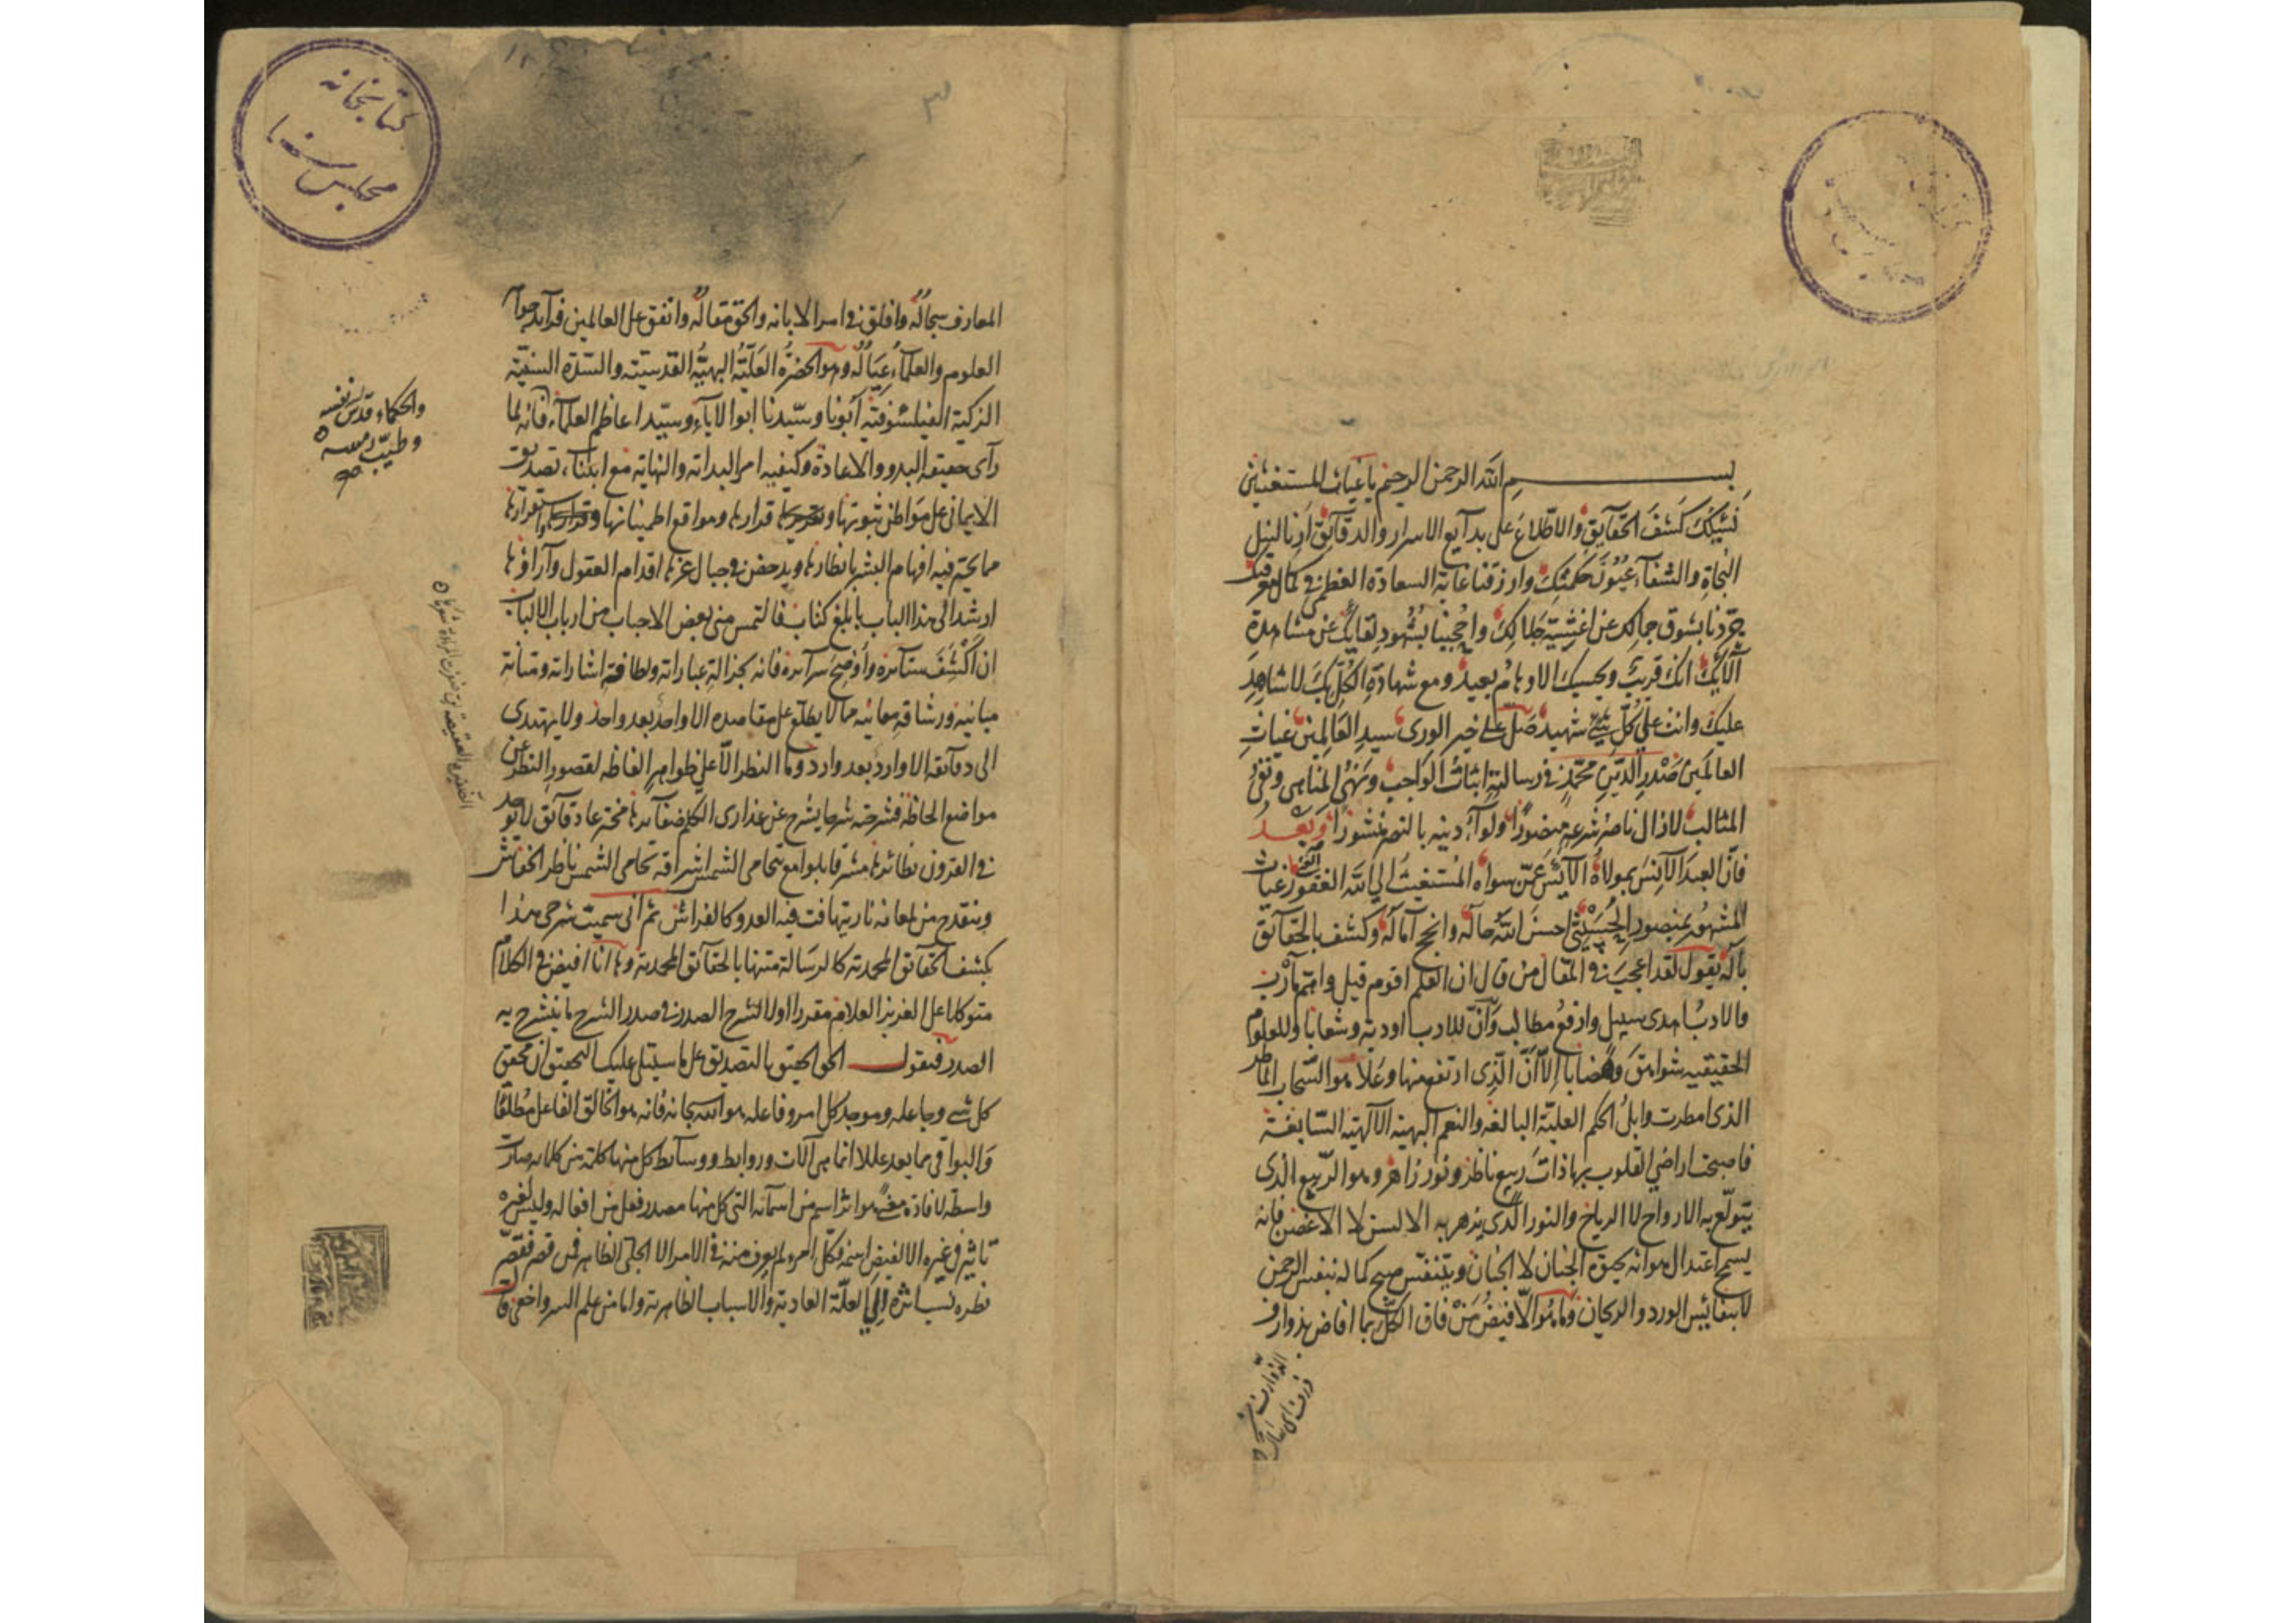 بسم الله الرحمن الرحيم يا غياث المستغيثين
نسئلك كشف الحقايق والاطلاع على بدايع الاسرار والدقايق أذنا لنيل
النجاة والشفآء عيون حكمتك وارزقنا غاية السعادة العظمى في كمال معرفتك
جردنا بشوق جمالك عن اغشية جلالك واحجبنا بشهود لقائك عن مشاهدة
آلائك انك قريب ويحسبك الاوهام بعيد ومع شهادة الكل بك لا شاهد
عليك وانت على كل شئ شهيد صل على خير الورى سيد العالمين غياث
العالمين صدر الدين محمد في رسالته اثبات الواجب ونهى المناهى ونفى
المثالب لا زال ناصر شرعه منصورا ولوآء دينه بالنصر منشورا وبعد
فان العبد الآنس بمولاه الآيس عمن سواه المستغيث الى الله الغفور غياث
المشهور بمنصور الحسينى احسن الله حاله وانجح آماله وكشف بالحقائق
باله يقول لقد اعجبنى في المقال من قال ان العلم اقوم قيل واتم مآرب
والادب اهدى سبيل وارفع مطالب وان للادب اودية وشعابا وللعلوم
الحقيقيه شواهق وهضابا الا ان الذى ارتفع منها وعلا هو السحاب الماطر
الذى امطرت وابل الحكم العلية البالغه والنعم البهية الآلهيه السابغة
فاصبحت اراضى القلوب بها ذات ربيع ناظر ونور زاهر وهو الربيع الذى
يتولع به الارواح لا الرياح والنور الذى يزهر به الالسن لا الاغصن فانه
يسمح اعتدال هوائه بحق الجنان لا الجنان ويتنفس صبح كماله بنفس الرحمن
لا بنفائس الورد والريحان وما هو الا فيض من فاق الكل بما افاض بذوارف
الذوارف
ذرف اى سال
المعارف سجاله وافلق في اسرار الابانه والحق مقاله وانفق على العالمين فرآيد جواهر
العلوم والعلمآء عياله وهو الحضرة العلية البهية القدسيته والسدة السنية
الزكية الفيلسوفيه أبونا وسيدنا ابو الآبآء وسيد اعاظم العلمآء فانه لما
والحكماء قدس نفسه
وطيب رمسه
رآى حقيقه البدو والاعادة وكيفيه امر البداته والنهاية مع ابتناء تصديق
الايمانى على مواطن ثبوتها وقرارها ومواقع اطمينانها واستقرارها
مما يحتر فيه افهام البشر بانظارها ويدحض في جبال عزها اقدام العقول وآراؤها
ارشد الى هذا الباب بابلغ كتاب فالتمس منى بعض الاحباب من ارباب الالباب
ان اكشف ستآئره واوضح سرآئره فانه بجزالة عباراته ولطافة اشاراته ومتانة
مبانيه ورشاقه معانيه مما لا يطلع على مقاصده الا واحد بعد واحد ولا يهتدى
الى دقائقه الا وارد بعد وارد وما النظر الا على ظواهر الفاظه لقصور النظر عن
مواضع الحاظه فشرحته شرحا يشرح عن عذارى الكلم ضفآئرها مخترعا دقآئق لا يوجد
في القرون نظائرها مشرقا بلوامع تحامى الشمس اشراقه تحامى الشمس ناظر الخفاش
وينقدح من لمعانه نار يتهافت فيه العدو كالفراش ثم انى سميت شرحى هذا
بكشف الحقآئق المحمدية كالرسالة متنها بالحقآئق المحمدية وها انا افيض في الكلام
متوكلا على العزيز العلام مقررا اولا لشرح الصدر في صدر الشرح ما ينشرح به
الصدر فنقول الحق الحقيق بالتصديق على ما سيتلى عليك التحقيق ان محقق
كل شئ وجاعله وموجد كل امر وفاعله هو الله سبحانه فانه هو الخالق الفاعل مطلقا
والبواقى مما يعد عللا انما هى آلات وروابط ووسآئط كل منها كلمة من كلماته صارت
واسطه لافادة معنى هو اثر اسم من اسمآئه التى كل منها مصدر فعل من افعاله وليس لغيره
تاثير في غيره الا لفيض اسمه فكل امرء لم يعرف منه في الامر الا الجلى الظاهر فمن قصر فقصر
نظره نسب اثره الى العلة العادية والاسباب الظاهرية واما من علم السر واخفى قال
كتابخانه
مجلس سنا